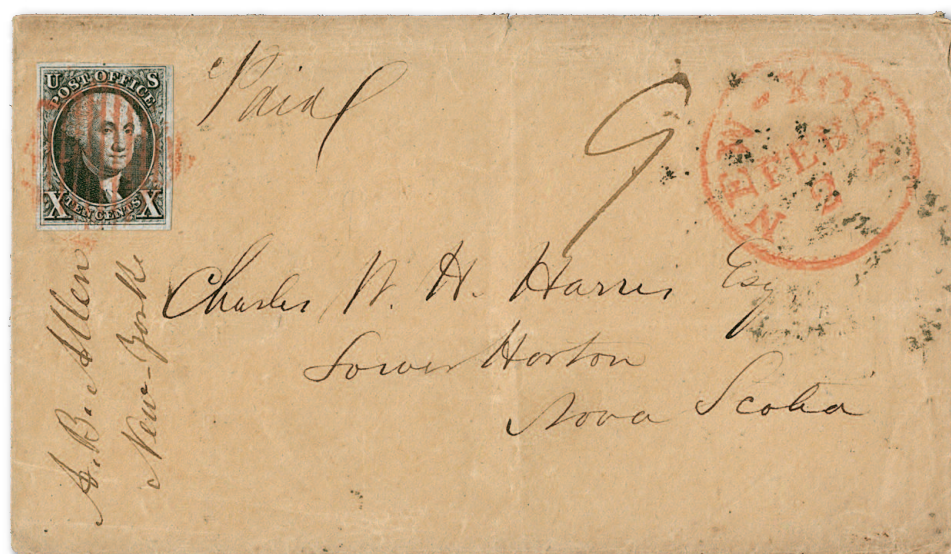 U S
POST OFFICE
X TEN CENTS X
Paid
9
NEW-YORK
FEB
2
Charles W. H. Harris Esq
Lower Horton
Nova Scotia
A. B. Allen
New-York